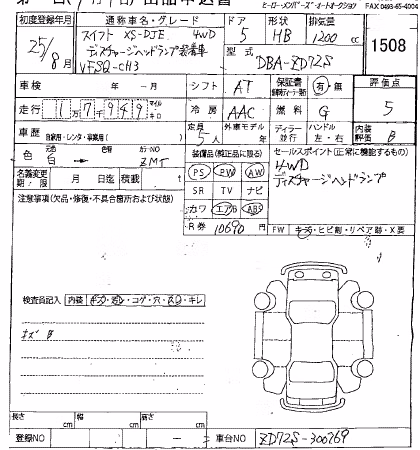 ヒーローメンバーズオートオークション FAX 0493-65-4004
初度登録年月 通称車名・グレード ドア 形状 排気量
25/8月 スイフト XS-DJE 4WD 5 HB 1200cc 1508
ディスチャージヘッドランプ装着車
VFSQ-CH3 型式 DBA-ZD72S
車検 年 月 シフト AT 保証書 有・無 評価点
走行 1万7949 マイル キロ 冷房 AAC 燃料 G 5
車歴 自家用・レンタ・事業用( ) 定員 5人 外車モデル 年 ディーラー 並行 ハンドル 左・右 内装評価 B
色 元色 白 カラーNO ZMT 装備品(純正品に限る) セールスポイント(正常に機能するもの)
名義変更期限 月 日迄 積載 t PS PW AW 4WD
ディスチャージヘッドランプ
注意事項(欠品・修復・不具合箇所および状態) SR TV ナビ
カワ エアB ABS
R券 10690円 FW キズ・ヒビ割・リペア跡・X要
検査員記入 内装 キズ・汚レ・コゲ・穴・スレ・キレ
キズ B
長さ cm 幅 cm 高さ cm
登録NO 車台NO ZD72S-300769